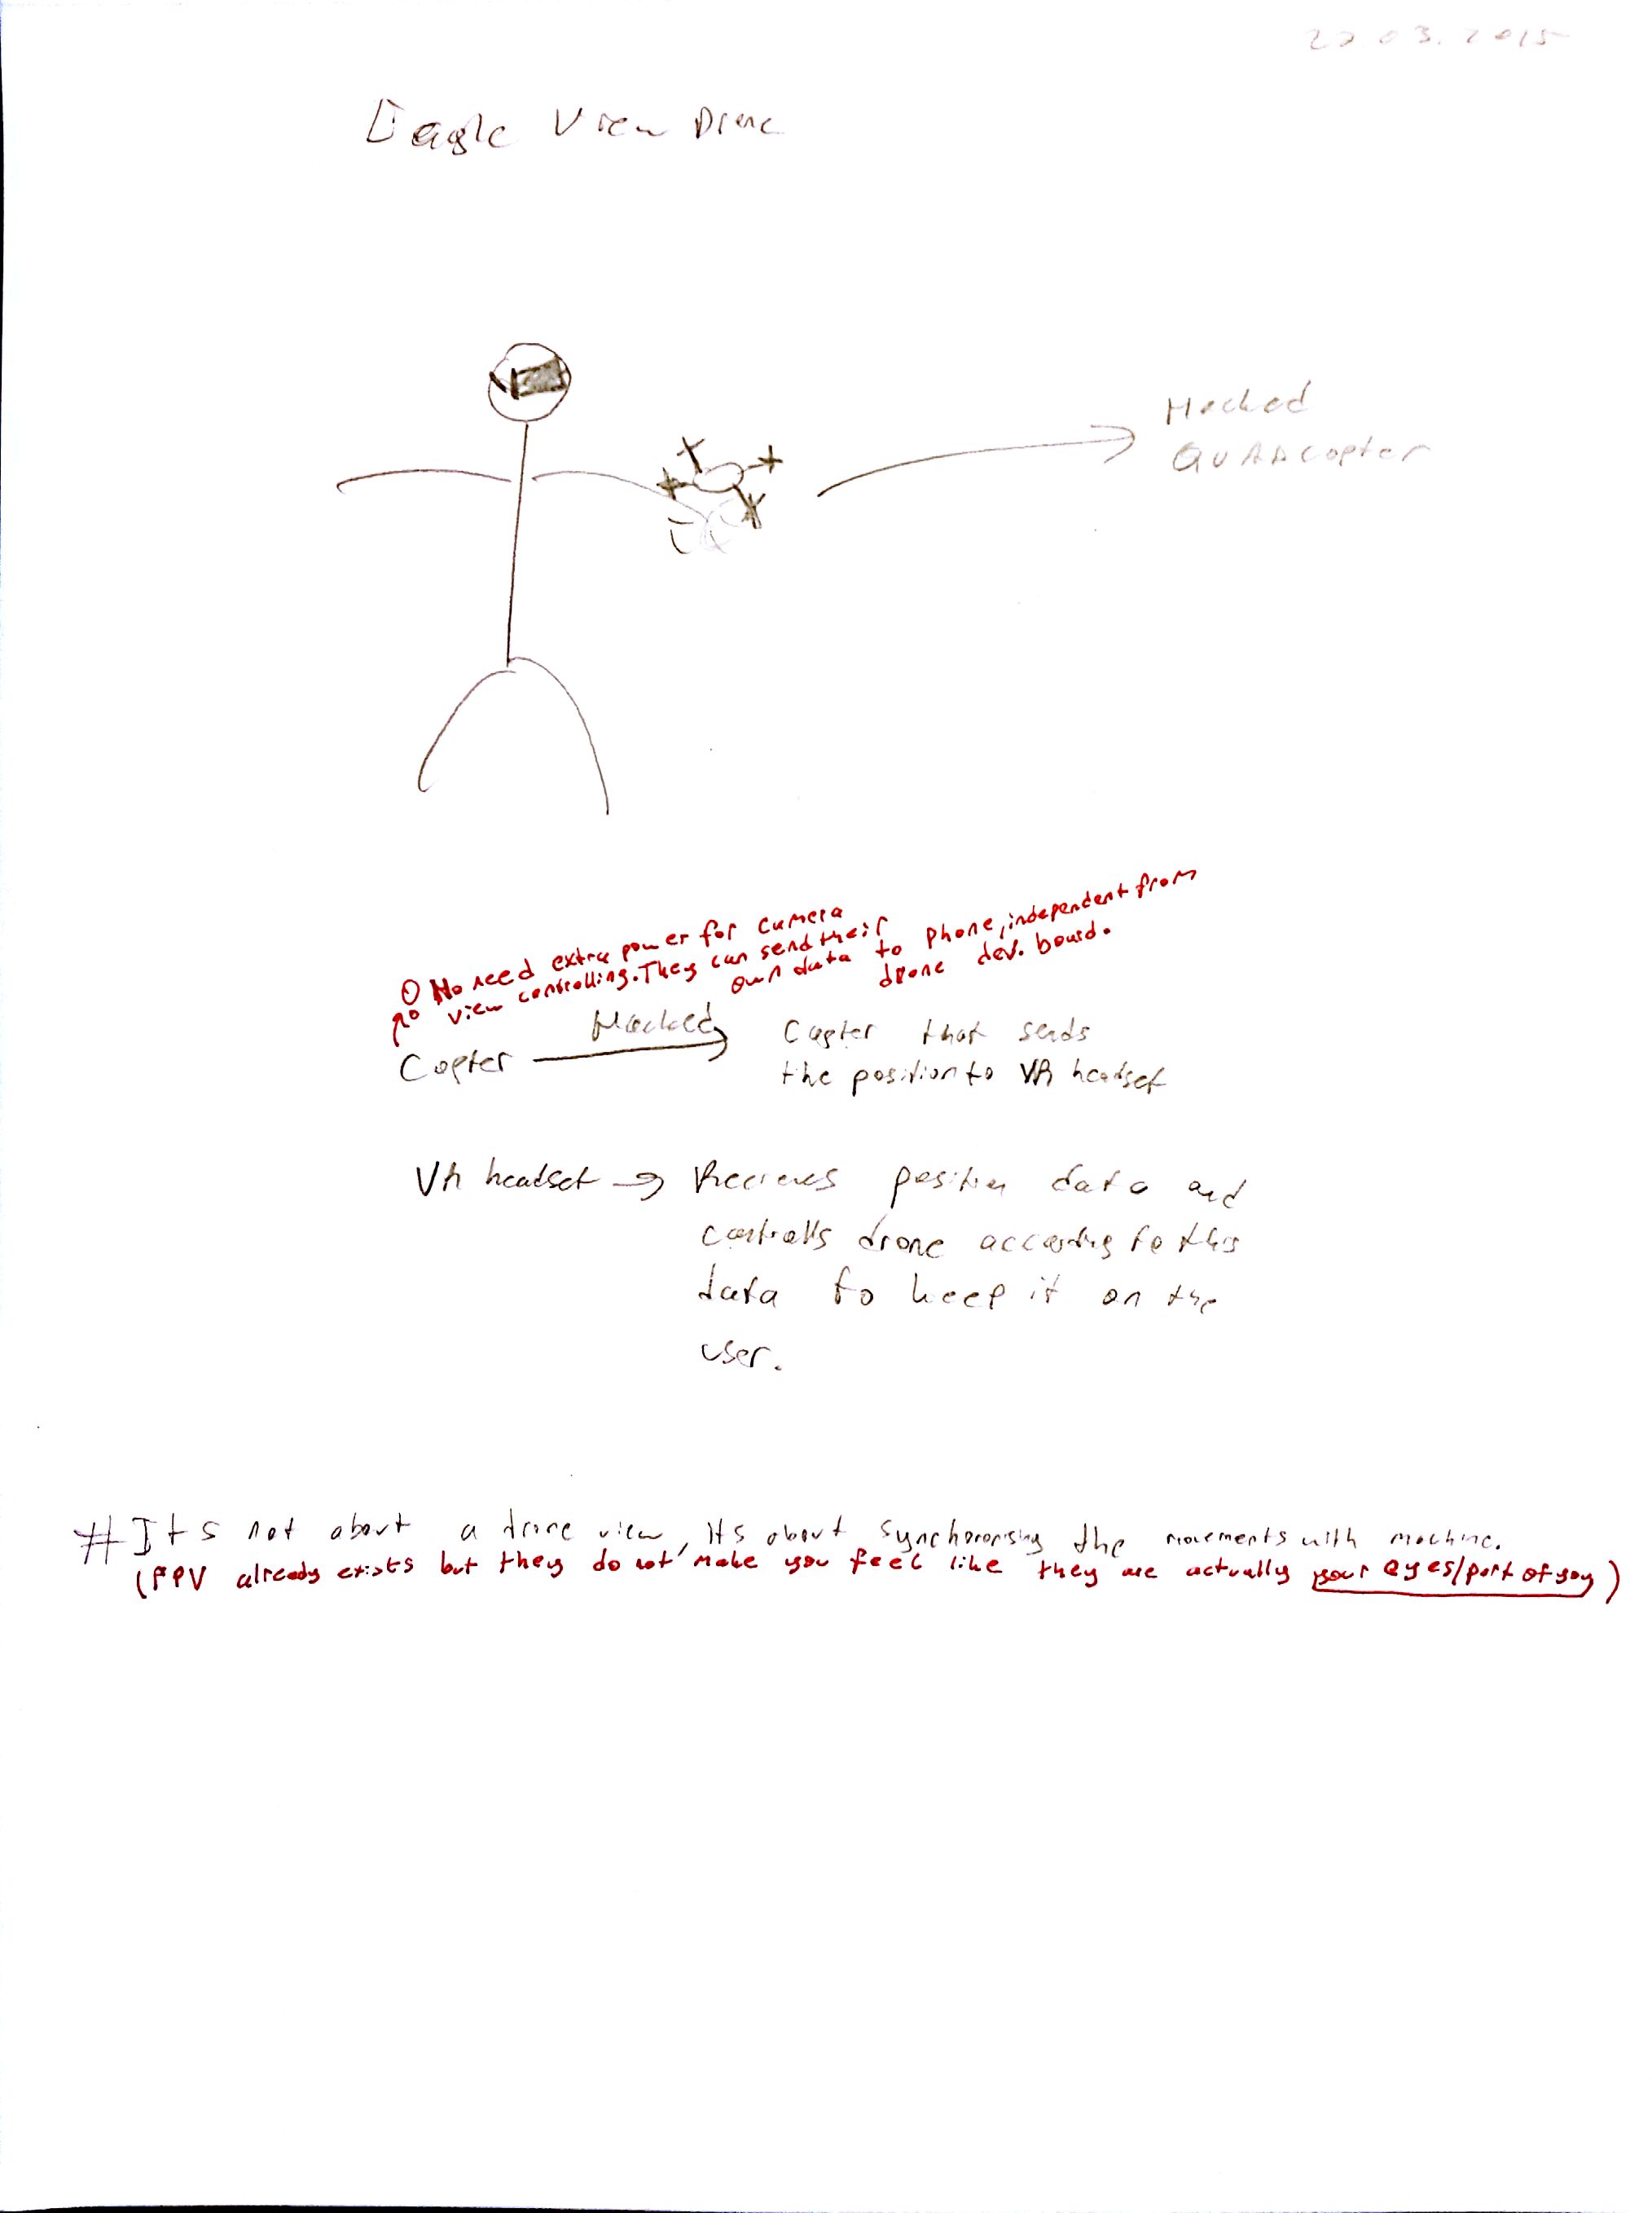 03.2015
Eagle View Drone
Hacked
QUADcopter
No need extra power for camera
view controlling. They can send their
own data to phone, independent from
drone dev. board.
Hacked
Copter → Copter that sends
the position to VR headset
VR headset → Recieves position data and
controlls drone according to this
data to keep it on the
user.
# Its not about a drone view, its about synchoronising the movements with machine.
(FPV already exists but they do not make you feel like they are actually your eyes/part of you)